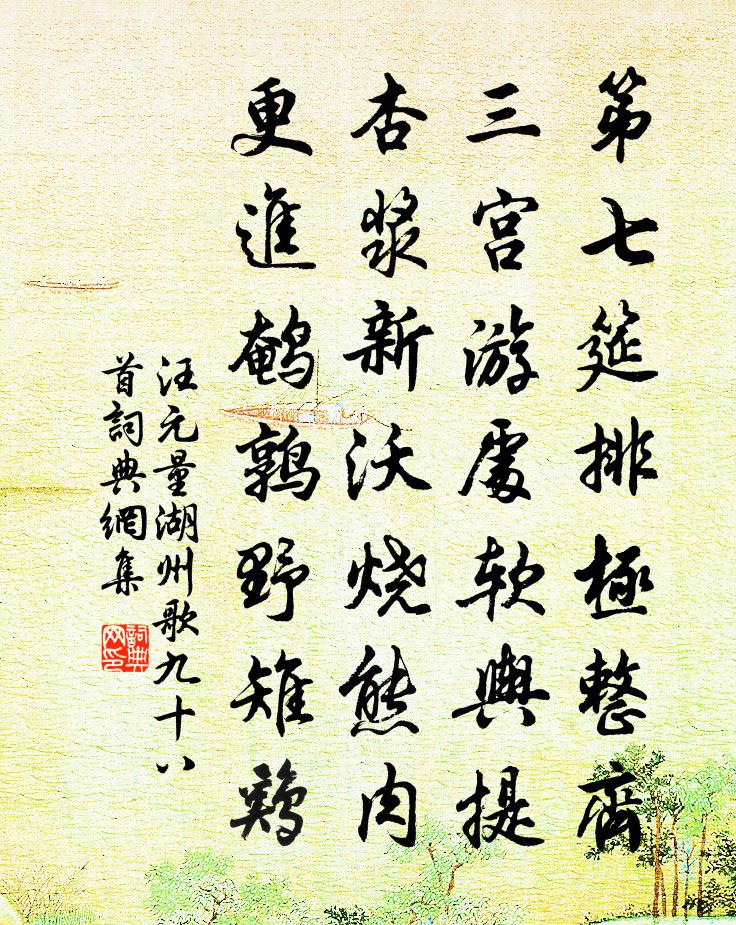 第七筵排極整齊
三宫游處软輿提
杏漿新沃烧熊肉
更進鹌鹑野雉鷄
汪元量湖州歌九十八
首詞典網集
詞典
网印